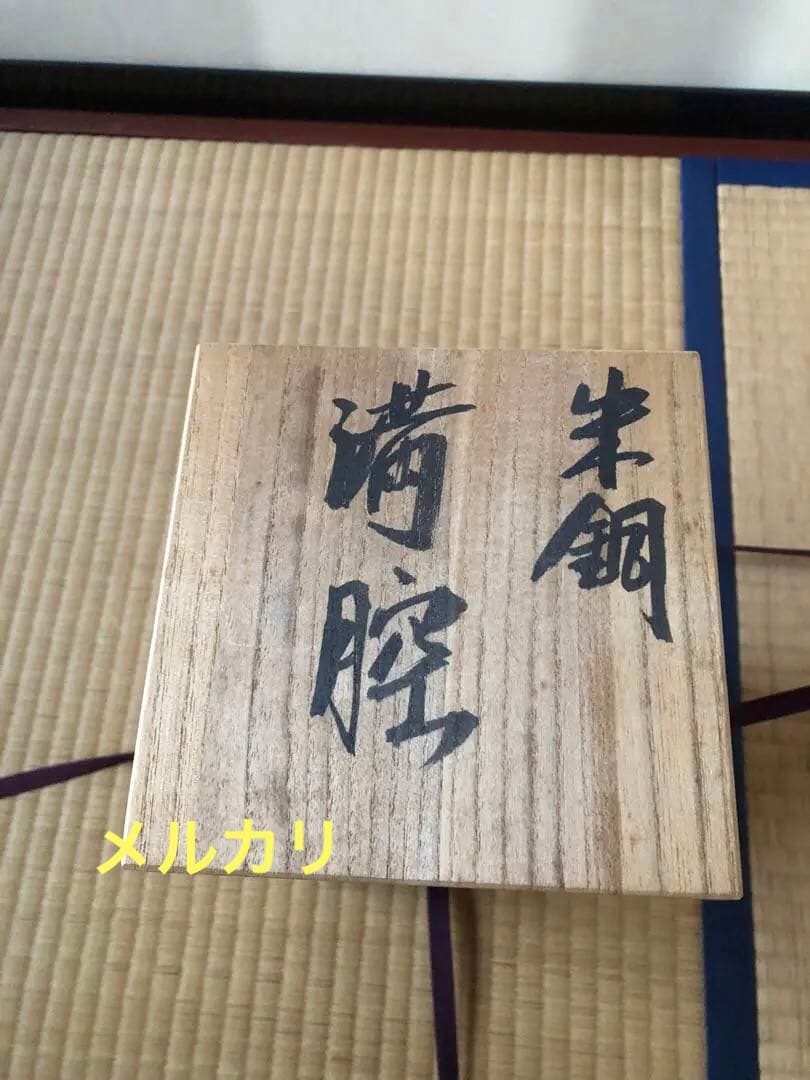 朱銅
満腔
メルカリ